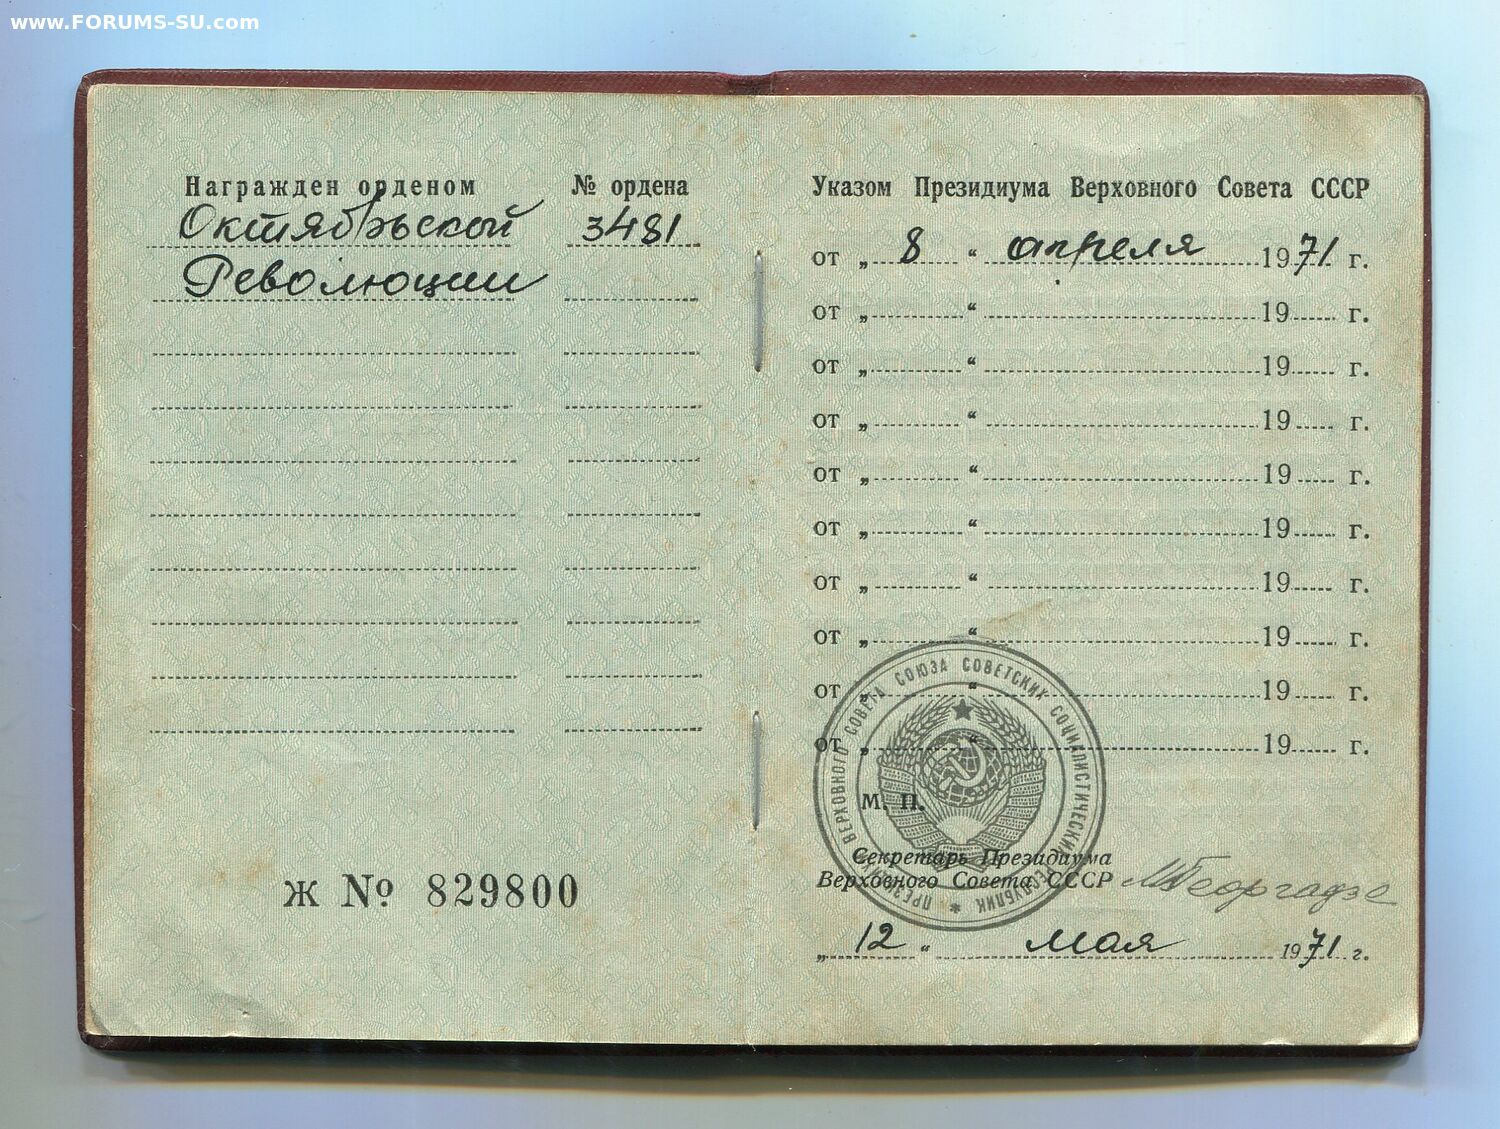 www.FORUMS-SU.com
Награжден орденом № ордена
Октябрьской 3481
Революции
Указом Президиума Верховного Совета СССР
от „ 8 “ апреля 1971 г.
от „ “ 19 г.
от „ “ 19 г.
от „ “ 19 г.
от „ “ 19 г.
от „ “ 19 г.
от „ “ 19 г.
от „ “ 19 г.
от „ “ 19 г.
от „ “ 19 г.
ПРЕЗИДИУМ ВЕРХОВНОГО СОВЕТА СОЮЗА СОВЕТСКИХ СОЦИАЛИСТИЧЕСКИХ РЕСПУБЛИК *
М. П.
Секретарь Президиума
Верховного Совета СССР МГеоргадзе
„ 12 “ мая 1971 г.
Ж № 829800